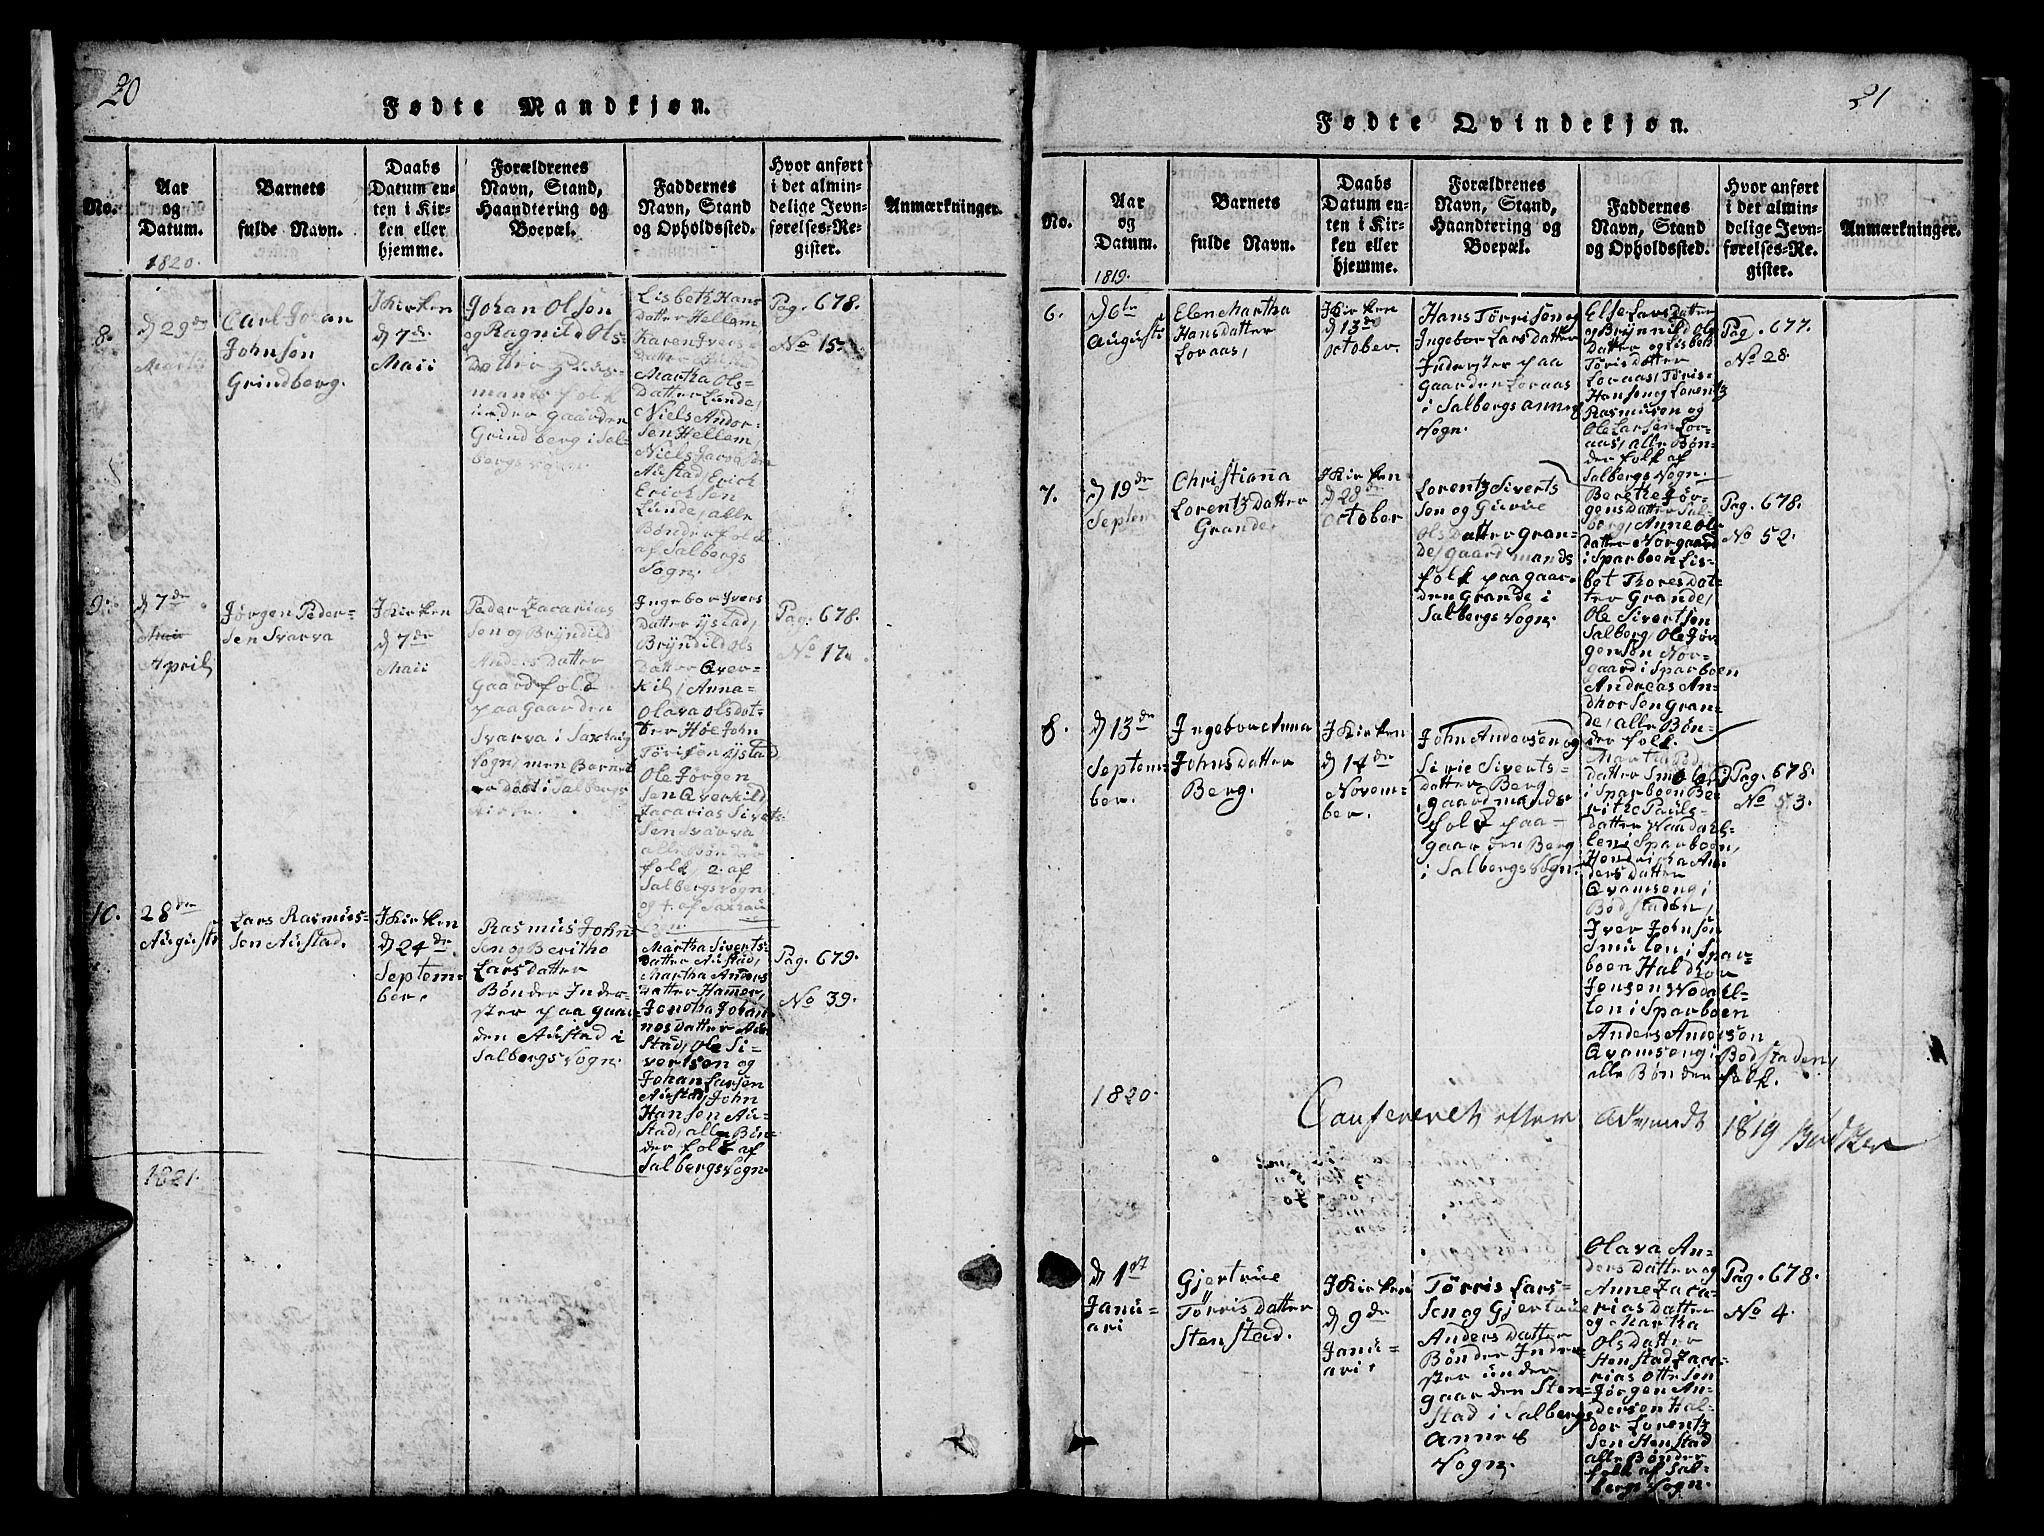 20
Fødte Mandkjøn.
No.
Aar
og
Datum.
Barnets
fulde Navn.
Daabs
Datum en-
ten i Kir-
ken eller
hjemme.
Forældrenes
Navn, Stand,
Haandtering og
Boepæl.
Faddernes
Navn, Stand
og Opholdssted.
Hvor anført
i det almin-
delige Jevn-
førelses-Re-
gister.
Anmærkninger.
1820.
8.
d 29de
Martii
Carl Johan
Johnsen
Grindberg.
I Kirken
d 7de
Maii
Johan Olsen
og Ragnild Ols-
Datter Huus-
mands folk
under Gaarden
Grindberg i Sal-
bergs Sogn.
Lisbeth Hans
Datter Hellem,
Karen Ivers-
Datter
Martha Ols-
Datter Lunde,
Niels Ander-
sen Hellem,
Niels Jacobsen
Austad, Erick
Ericksen
Lunde, alle
Bønderfolk
af Salbergs
Sogn.
Pag. 678.
No 15.
9.
d 7de
Maii
April
Jørgen Peder-
sen Svarva
I Kirken
d 7de
Maii
Peder Zacarias
Sen og Bryndild
Anders Datter
Gaardfolk
paa Gaarden
Svarva i Saxhaug
Sogn, men Barnet
er døbt i Salbergs
Kirke.
Ingebor Ivers
Datter Ystad,
Bryndild Ols
Datter Qver-
kil, Anna-
Olava Olsdat-
ter Høe John
Torisen Ystad,
Ole Jørgen
Sen Qverkild
Zacarias Sivert-
sen Svarva
alle Bønder
folk, 2. af
Salbergs Sogn
og 4. af Saxhau
Pag. 678.
No 17.
10.
28de
August
Lars Rasmus-
sen Austad.
I Kirken
d 24de
Septem-
ber.
Rasmus John
Sen og Beritha
Larsdatter
Bønder Inder-
ster paa Gaar-
den Austad i
Salbergs Sogn.
Martha Siverts-
datter Austad,
Martha Anders
Datter Hammer,
Jonetha Johan
nesdatter Au-
stad, Ole Si-
vertsen og
Johan Larsen
Austad, John
Hansen Au-
stad, alle Bøn-
der folk af
Salbergs Sogn.
Pag. 679.
No 39.
1821.
21
Fødte Qvindekjøn.
No.
Aar
og
Datum.
Barnets
fulde Navn.
Daabs
Datum en-
ten i Kir-
ken eller
hjemme.
Forældrenes
Navn, Stand,
Haandtering og
Boepæl.
Faddernes
Navn, Stand
og Opholdssted.
Hvor anført
i det almin-
delige Jevn-
førelses-Re-
gister.
Anmærkninger.
1819.
6.
d 6te
Augusti
Elen Martha
Hansdatter
Loraas,
I Kirken
d 13de
October.
Hans Tørrisen og
Ingebor Lars datter
Inderster paa
Gaarden Loraas
i Salbergs annex
Sogn.
Else Larsdatter
og Brynnild Ols
Datter og Lisbeth
Torisdatter
Loraas, Tøris-
Hansen og Lorentz
Rasmusen og
Ole Larsen Lor-
aas, alle Bøn-
der folk af
Salbergs Sogn.
Pag. 677.
No 28.
7.
d 19de
Septem
Christianna
Lorentz Datter
Grande.
I Kirken
d 28de
October
Lorentz Siverts
Sen og Gurue
Olsdatter Gran-
de, Gaardmands
folk paa Gaar-
den Grande i
Salbergs Sogn.
Berethe Jør-
gensdatter Sal-
berg, Anne Ols
datter Norgaard
i Sparboen Lis-
bet Thoresdat-
ter Grande,
Ole Sivertsen
Salberg Ole Jør
gensen Nor-
gaard i Sparboen
Andreas An-
dhorsen Gran-
de, alle Bøn-
der folk.
Pag. 678.
No 52.
8.
d 13de
Septem-
ber.
Ingebor Anna
Johnsdatter
Berg.
I Kirken
d 14de
Novem-
ber.
John Andersen og
Sirie Siverts-
datter Berg
gaardmands-
folk paa-
gaarden Berg
i Salbergs Sogn.
Martha
datter
i Sparboen Be-
rithe Pauls-
datter Wandahl-
len i Sparboen,
Hendricka An-
dersdatter
Qvamseng i
Bodstaden,
Iver Johnsen
Smulen i Spar-
boen Haldhor
Jensen Wodahl-
len i Sparboen
Anders Andersen
Qvamseng i Bodstaden,
alle Bønder folk.
Pag. 678.
No 53.
1820.
Confereret efter Advendt 1819
d 1st
Janu-
ari
Gjertrue
Tørrisdatter
Stenstad.
I Kirken
d 9de
Janu-
ari
Tørris Lars-
Sen og Gjertrue
Anders Datter
Bønder Inder-
ster under
Gaarden Sten-
stad i Salbergs
Annex
Sogn.
Olava An-
ders Datter og
Anne Zaca-
rias Datter
og Martha
Olsdatter
Stenstad, Zaca-
rias Ottesen
Jørgen An-
dersen Hal-
dor Lorentz
Sen Stenstad
alle Bønder
folk af Sal-
bergs Sogn.
Pag. 678.
No 4.